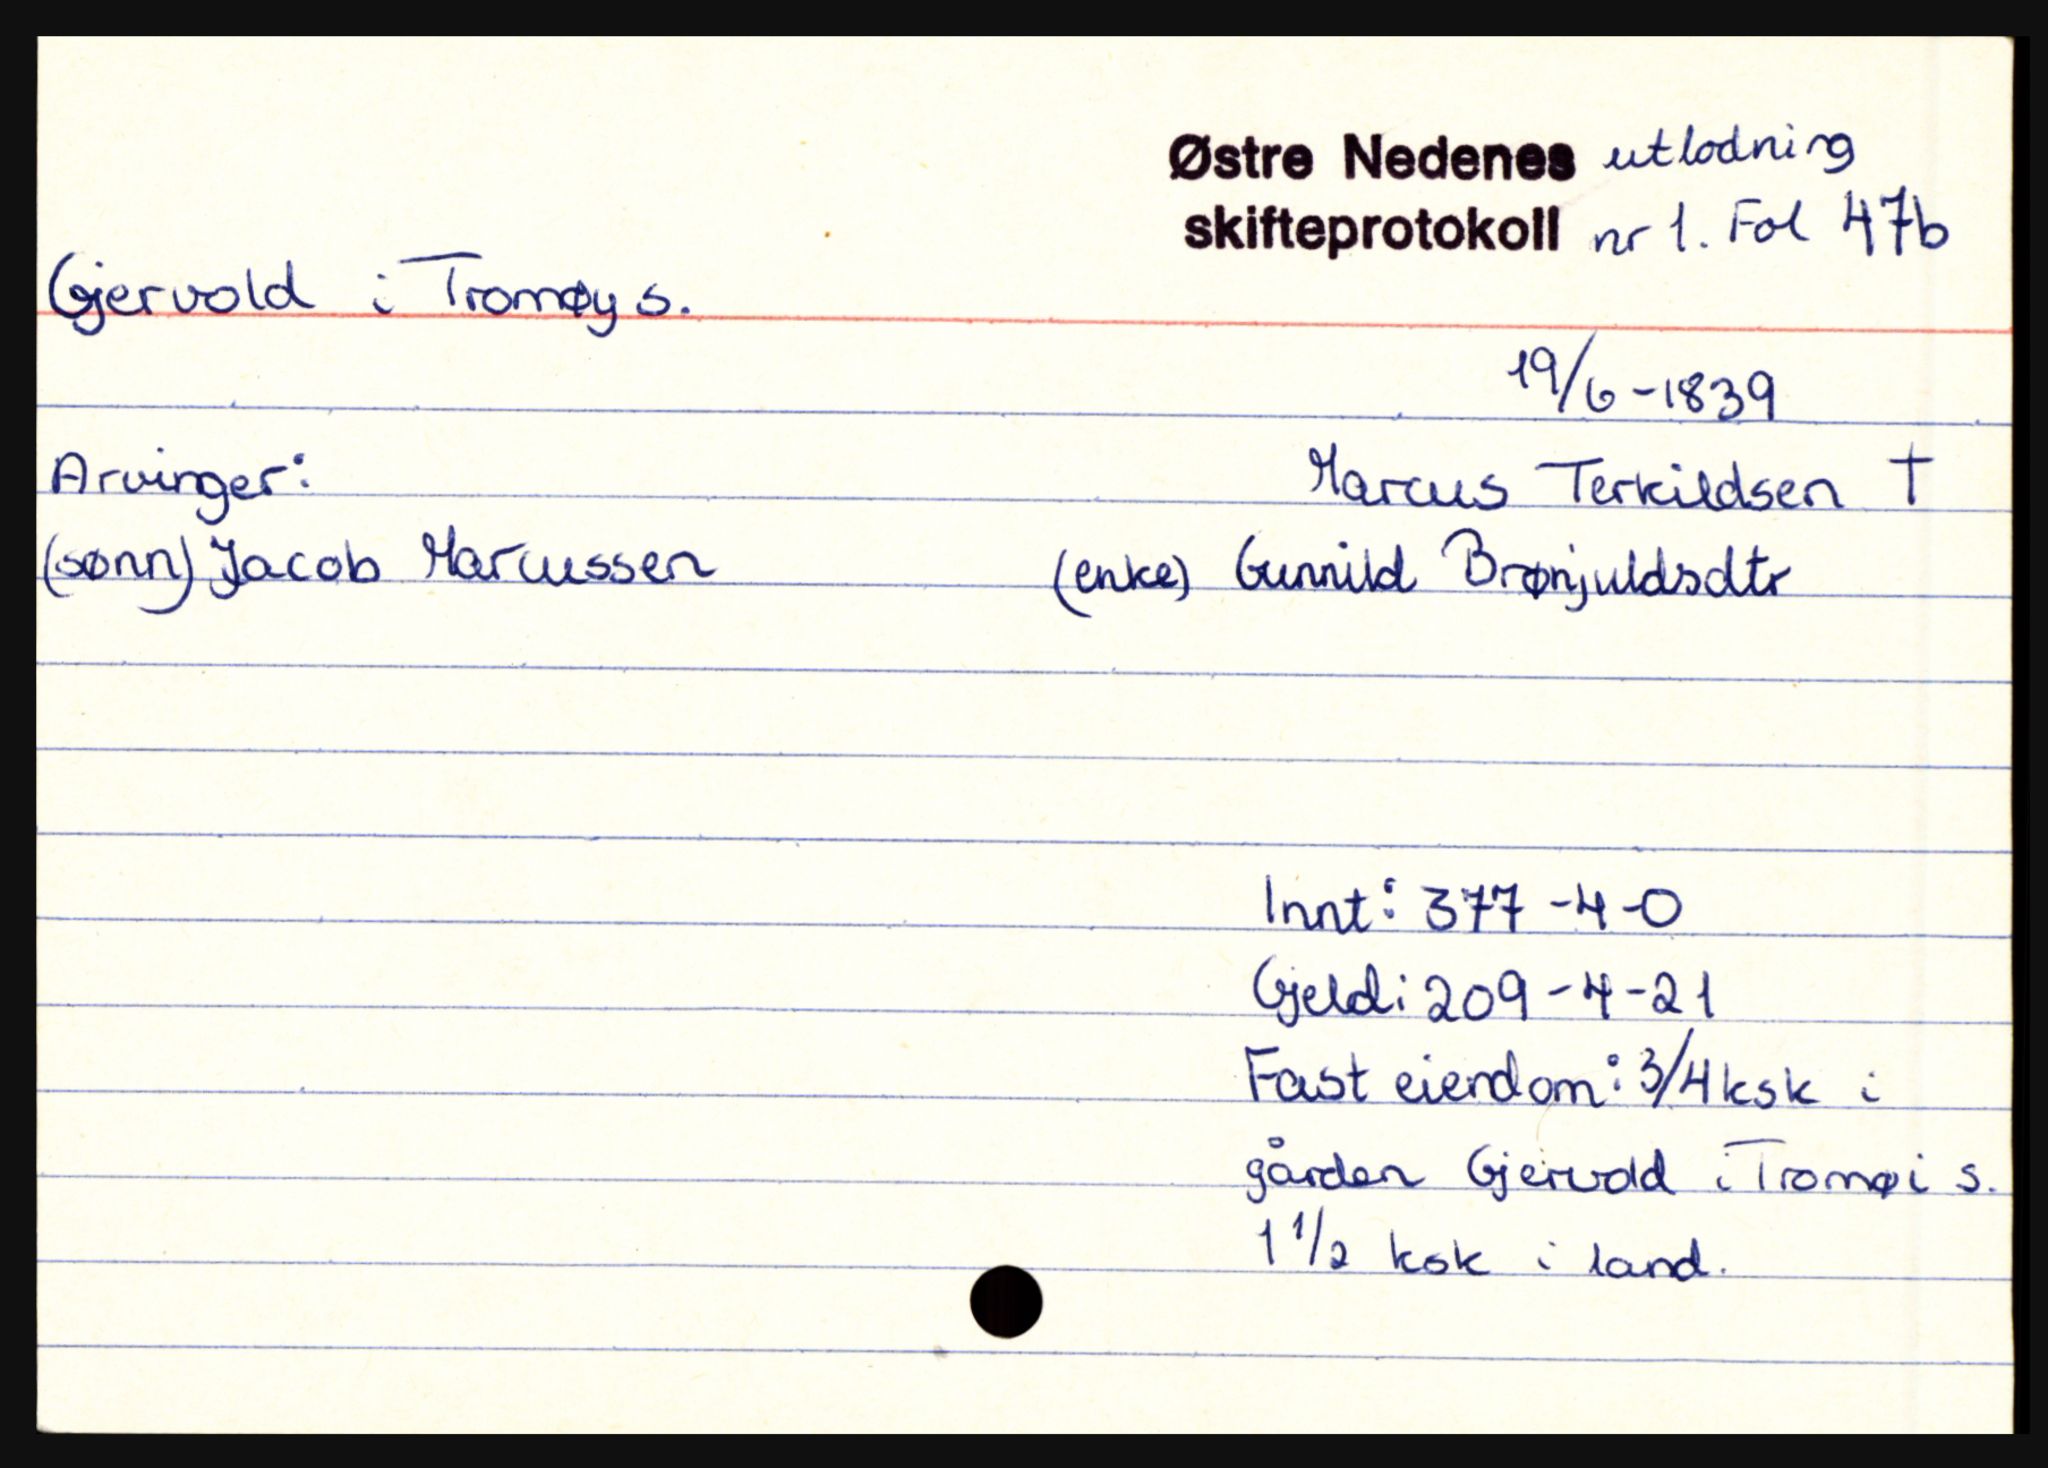 Østre Nedenes utlodning
skifteprotokoll nr 1. Fol 47b
Gjervold i Tromøy s.
19/6-1839
Arvinger:
Marcus Terkildsen †
(sønn) Jacob Marcussen
(enke) Gunnild Brønjuldsdtr
Innt: 377-4-0
Gjeld: 209-4-21
Fast eiendom: 3/4 ksk i
gården Gjervold i Tromøi s.
1 1/2 ksk i land.